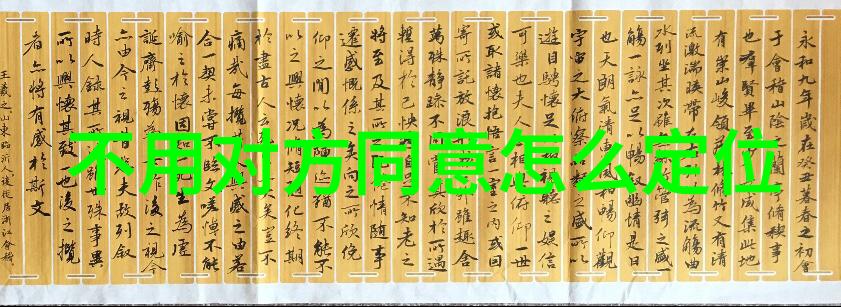 不用对方同意怎么定位
永和九年歲在癸丑暮春之初會
于會稽山陰之蘭亭脩稧事
也群賢畢至咸集此地
有崇山峻領林脩竹又有清
流激湍暎帶左為流觴曲
水列坐其次雖管弦之盛一
觴一詠亦足以暢叙幽情是日
也天朗氣清惠風和暢仰觀
宇宙之大俯察品類之盛所以
遊目騁懷足視聽之娛信
可樂也夫人相俯仰一世
或取諸懷抱悟言一室之內或因
寄所託放浪外雖趣舍
萬殊靜躁不同欣於所遇
暫得於己快自足不知老之
將至及其所之情隨事
遷感慨係之矣向之所欣俛
仰之間以為陳迹猶不能不
以之興懷況脩短化終期
於盡古人云矣豈不
痛哉每攬興感之由若
合一契未嘗不臨文嗟悼不能
喻之於懷固知生為虛
誕齊彭殤為作後之視今
亦由今之視昔夫故列叙
時人錄其所世殊事異
所以興懷其致也後之攬
者亦將有感於斯文
王羲之山東臨沂人後徙居浙江會稽